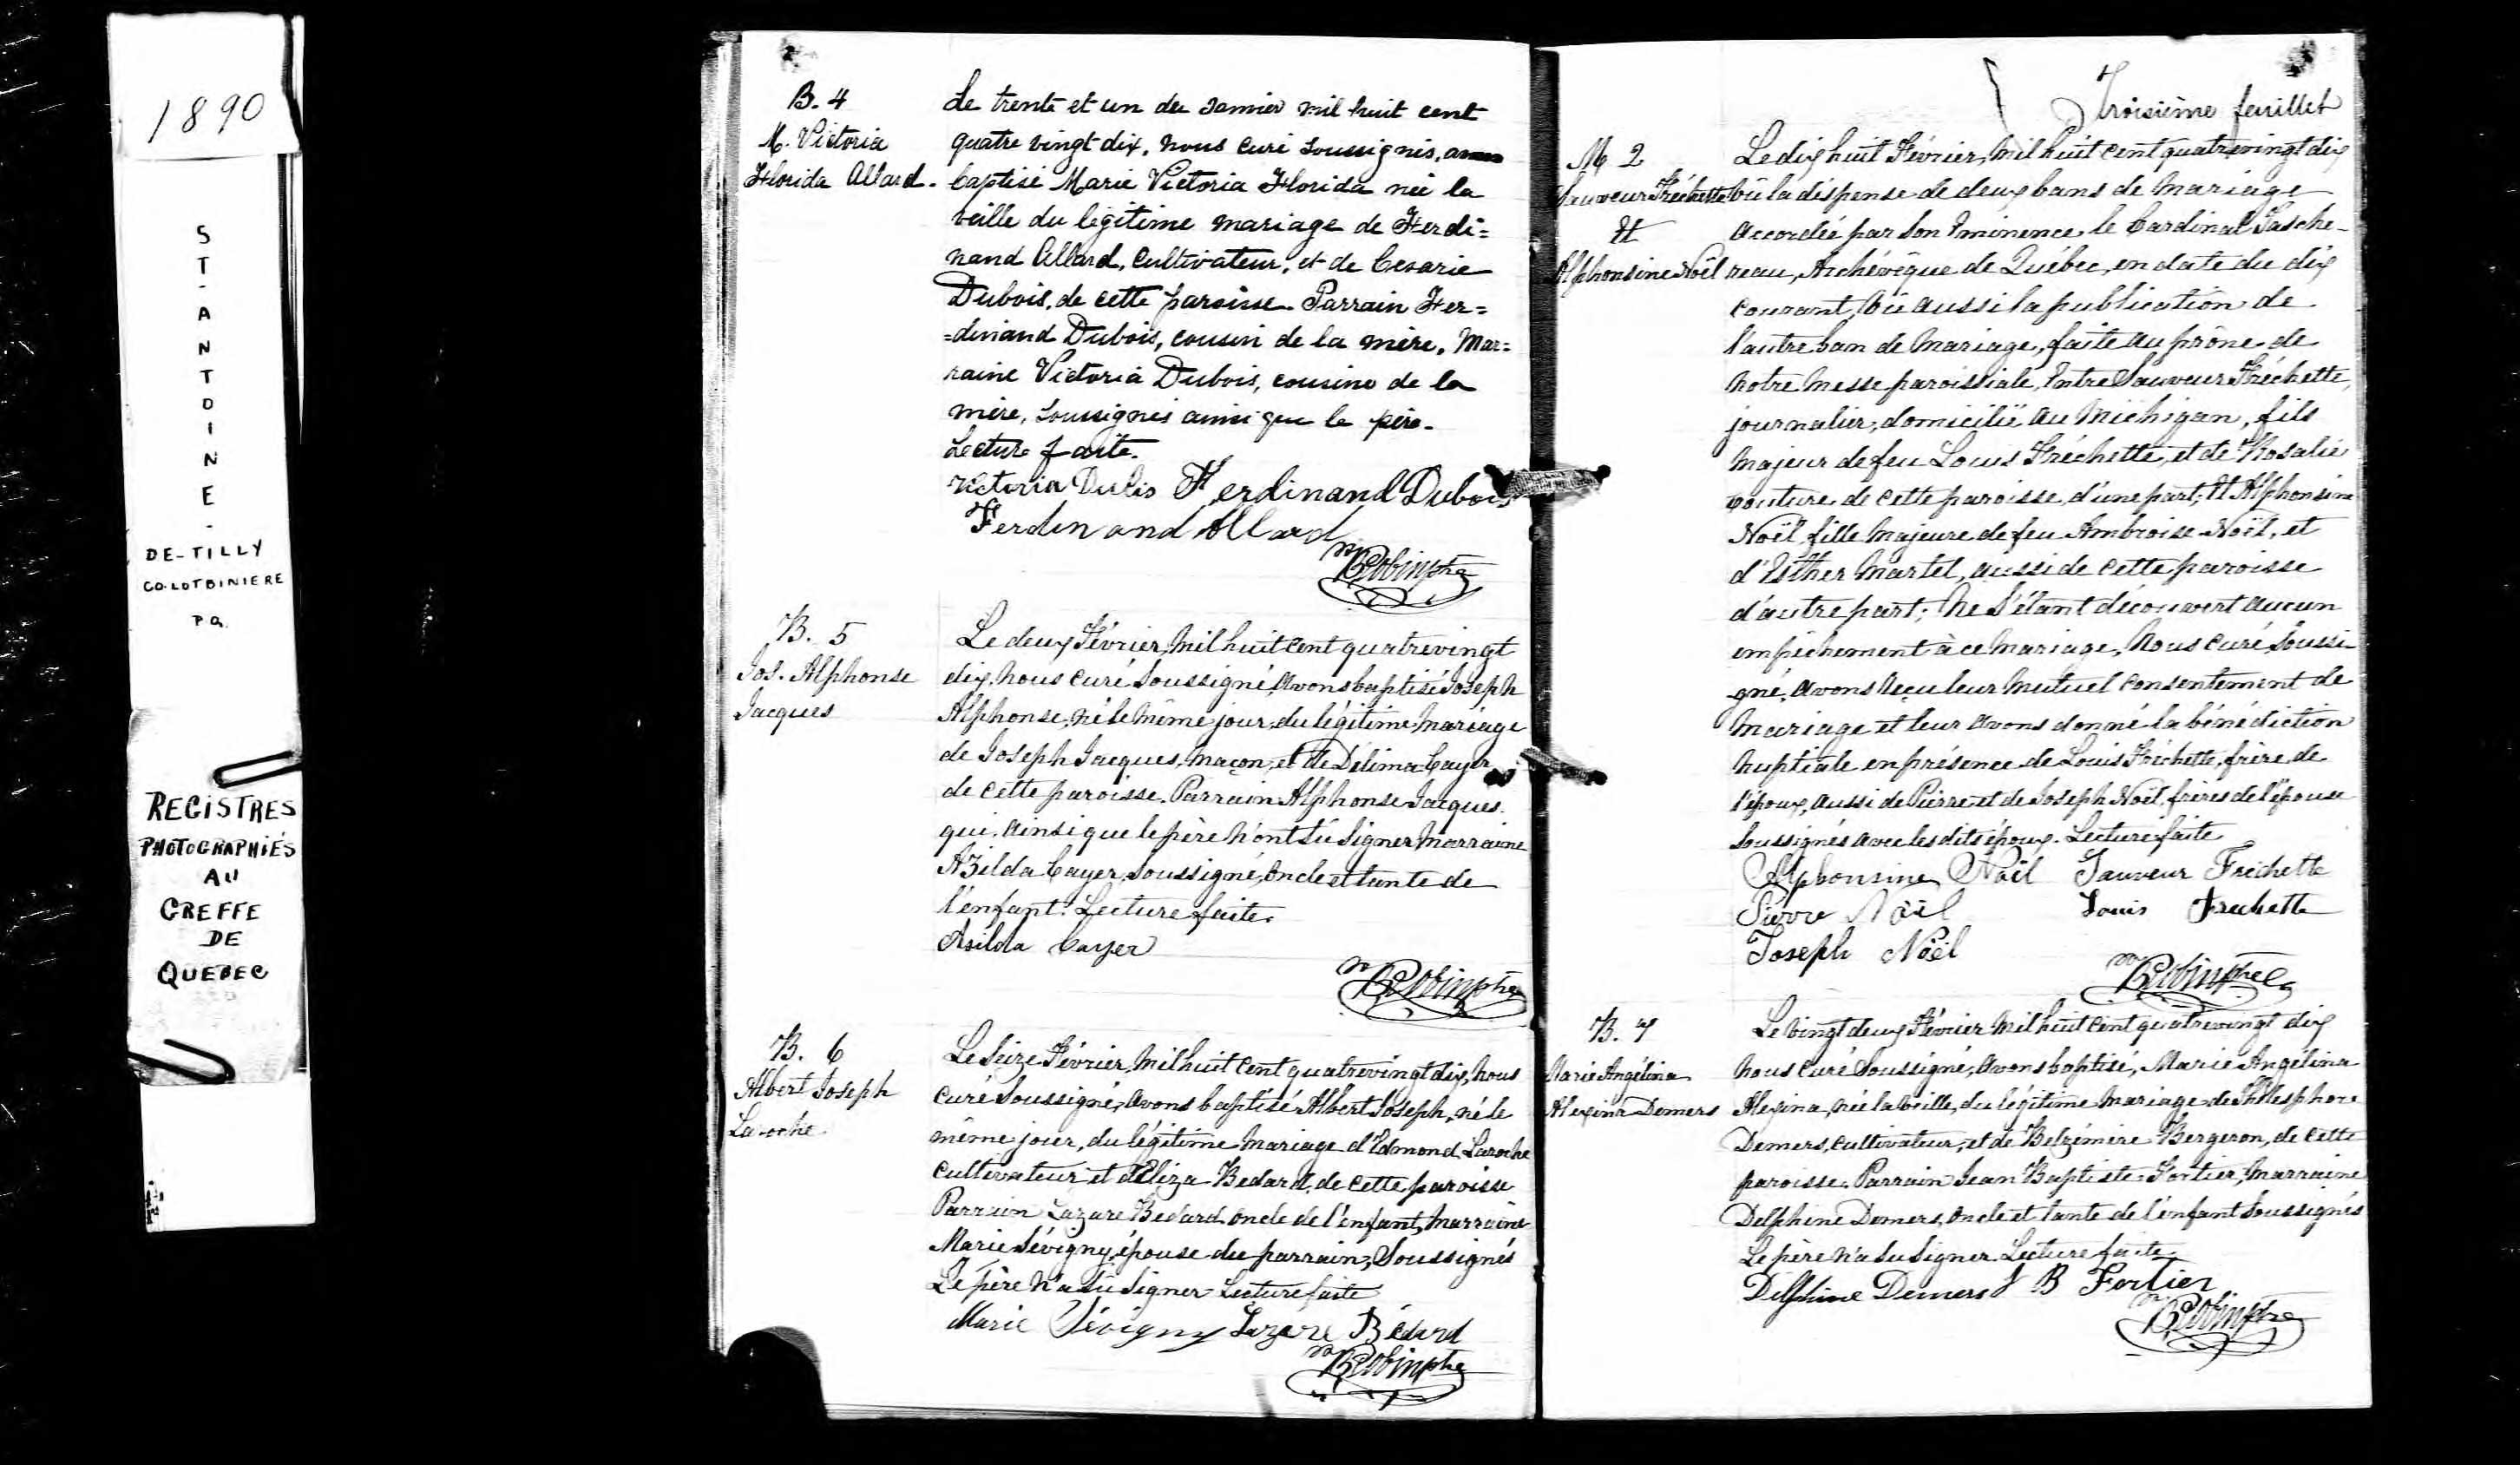 1890
ST-ANTOINE-
DE-TILLY
CO. LOTBINIERE
P Q.
REGISTRES
PHOTOGRAPHIÉS
AU
GREFFE
DE
QUEBEC
B. 4
M. Victoria
Florida Allard.
Le trente et un de Janvier mil huit cent
quatre vingt dix, nous curé soussignés, avons
baptisé Marie Victoria Florida née la
veille du légitime mariage de Ferdi=
nand Allard, Cultivateur, et de Cesarie
Dubois, de cette paroisse. Parrain Fer=
=dinand Dubois, cousin de la mère, Mar=
raine Victoria Dubois, cousine de la
mère, soussignés ainsi que le père.
Lecture faite.
Victoria Ferdinand Dubois
Ferdinand Allard
B. 5
Jos. Alphonse
Jacques
Le deux Février, Mil huit cent quatre vingt
dix, nous curé soussigné, avons baptisé Joseph
Alphonse, né le même jour, du légitime mariage
de Joseph Jacques, maçon, et de Délima Cayer
de cette paroisse. Parrain Alphonse Jacques.
qui, ainsi que le père n'ont su signer, Marraine
Azilda Cayer, soussigné, oncle et tante de
l'enfant. Lecture faite.
Asilda Cayer
B. 6
Albert Joseph
Laroche
Le Seize Février, Mil huit cent quatre vingt dix, nous
curé soussigné, avons baptisé Albert Joseph, né le
même jour, du légitime mariage d'Edmond Laroche
cultivateur et d'Eliza Bedard, de cette paroisse
Parrain Lazare Bedard oncle de l'enfant, Marraine
Marie Sévigny, épouse du parrain, Soussignés
Le père n'a su signer - Lecture faite
Marie Sévigny Lazare Bédard
Troisième feuillet
M 2
Sauveur Fréchette
Et
Alphonsine Noël
Le dix huit Février, Mil huit cent quatre vingt dix
Vû la dispense de deux bans de Mariage
accordée par Son Eminence, le Cardinal Tasche-
reau, Archévêque de Québec, en date du dix
courant, Vû aussi la publication de
l'autre ban de Mariage, faite au prône de
notre Messe paroissiale, Entre Sauveur Fréchette,
journalier, domicilié au Michigan, fils
majeur de feu Louis Fréchette, et de Rosalie
couture, de cette paroisse, d'une part; Et Alphonsine
Noël, fille majeure de feu Ambroise Noël, et
d'Esther Martel, aussi de cette paroisse
d'autre part; Ne s'étant découvert aucun
empêchement à ce Mariage, Nous curé, Soussi-
gné, avons reçu leur mutuel consentement de
Mariage et leur avons donné la bénédiction
Nuptiale en présence de Louis Fréchette, frère de
l'époux, aussi de Pierre et de Joseph Noël, frères de l'épouse
soussignés avec les dits époux. Lecture faite
Alphonsine Noël Sauveur Frechette
Pierre Noël Louis Frechette
Joseph Noël
B. 7
Marie Angélina
Alexina Demers
Le vingt deux Février Mil huit cent quatre vingt dix
Nous curé soussigné, avons baptisé, Marie Angélina
Alexina, née la veille, du légitime mariage de Thélesphore
Demers, cultivateur, et de Belzémire Bergeron, de cette
paroisse. Parrain Jean Baptiste Fortier, Marraine
Delphine Demers, oncle et tante de l'enfant Soussignés
Le père n'a su signer. Lecture faite.
Delphine Demers J B Fortier